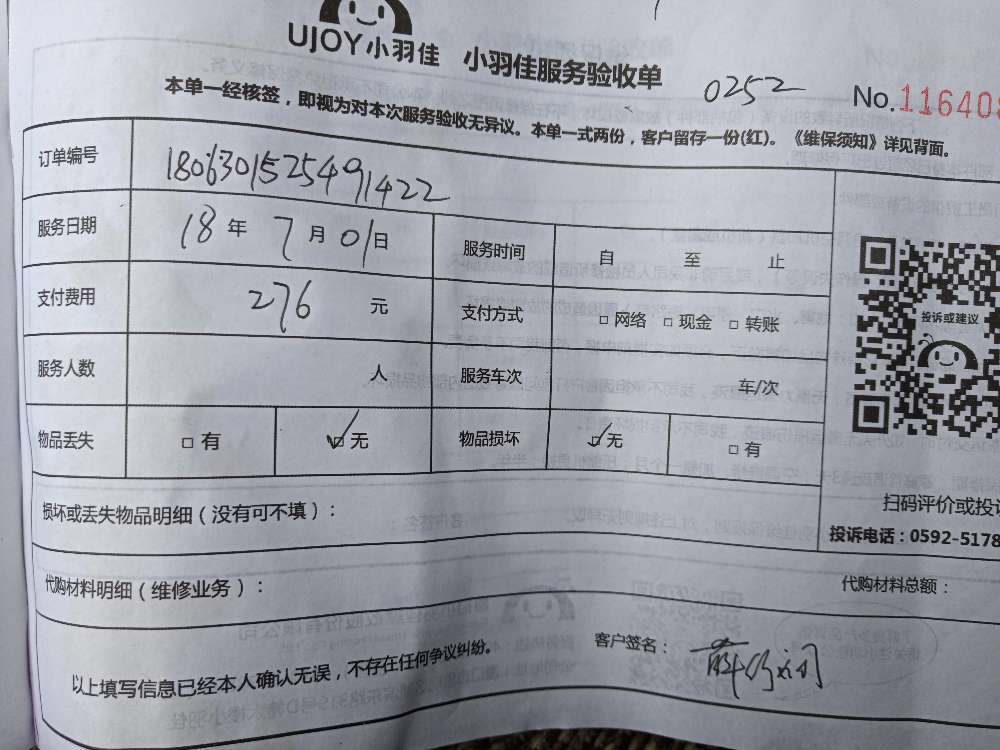 UJOY小羽佳 小羽佳服务验收单
0252 No.116408
本单一经核签，即视为对本次服务验收无异议。本单一式两份，客户留存一份(红)。《维保须知》详见背面。
订单编号 1806301525491422
服务日期 18 年 7 月 01 日 服务时间 自 至 止
支付费用 276 元 支付方式 □ 网络 □ 现金 □ 转账
投诉或建议
服务人数 人 服务车次 车/次
物品丢失 □ 有 ☑ 无 物品损坏 ☑ 无 □ 有
扫码评价或投
损坏或丢失物品明细（没有可不填）：
投诉电话：0592-5178
代购材料明细（维修业务）： 代购材料总额：
客户签名：
以上填写信息已经本人确认无误，不存在任何争议纠纷。